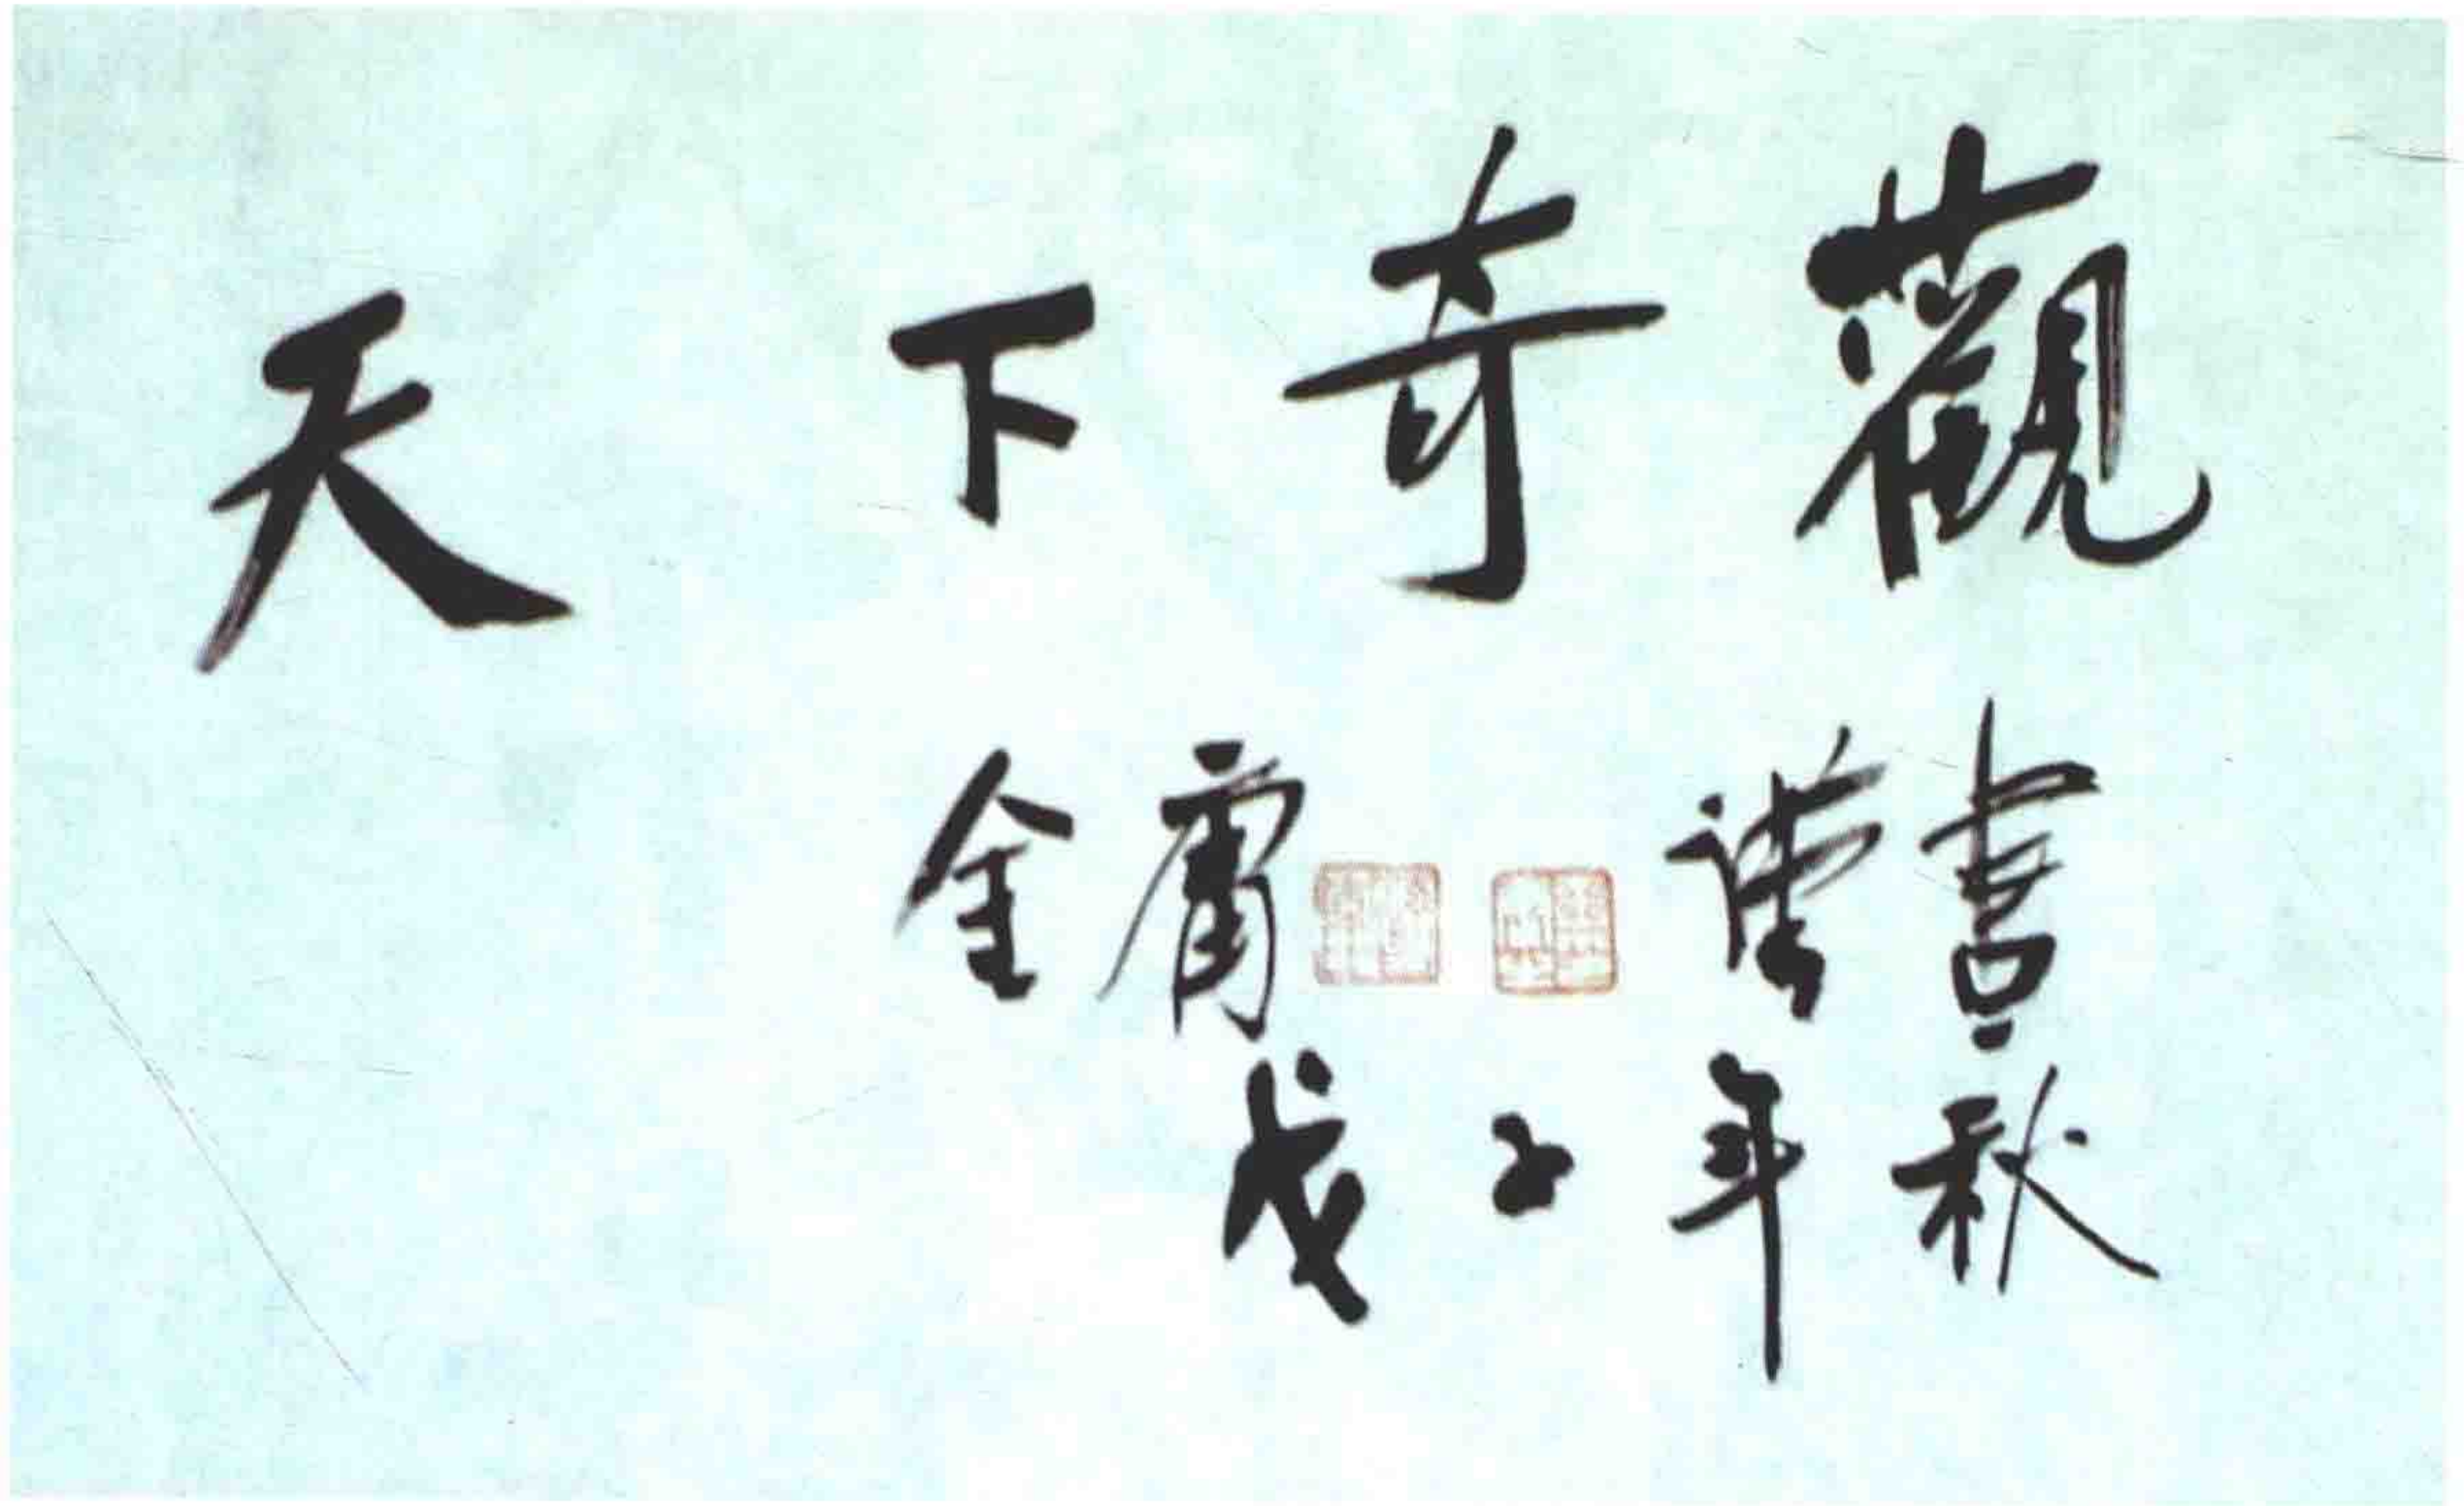 天下奇觀
金庸 謹書
戊子年秋